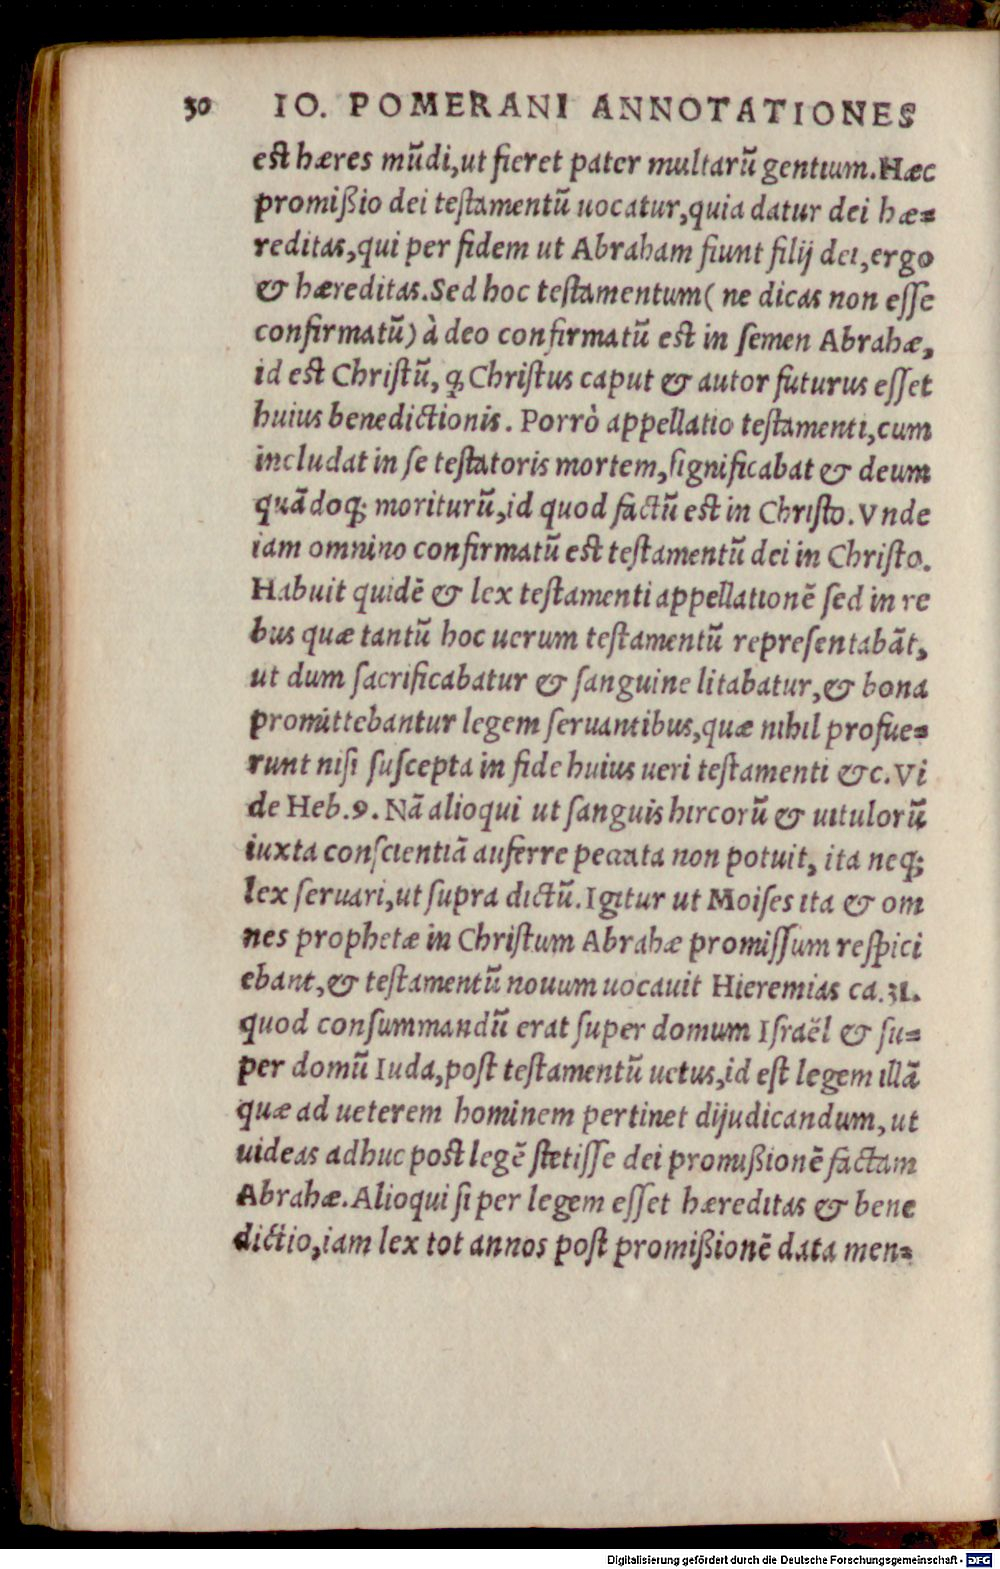 30 IO. POMERANI ANNOTATIONES
est hæres mūdi,ut fieret pater multarū gentium.Hæc
promißio dei testamentū uocatur,quia datur dei hæ=
reditas,qui per fidem ut Abraham fiunt filij dei,ergo
& hæreditas.Sed hoc testamentum( ne dicas non esse
confirmatū) à deo confirmatū est in semen Abrahæ,
id est Christū, ꝙ Christus caput & autor futurus esset
huius benedictionis. Porrò appellatio testamenti,cum
includat in se testatoris mortem,significabat & deum
quādoq; moriturū,id quod factū est in Christo.Vnde
iam omnino confirmatū est testamentū dei in Christo.
Habuit quidē & lex testamenti appellationē sed in re
bus quæ tantū hoc uerum testamentū representabāt,
ut dum sacrificabatur & sanguine litabatur,& bona
promittebantur legem seruantibus,quæ nihil profue=
runt nisi suscepta in fide huius ueri testamenti &c.Vi
de Heb.9. Nā alioqui ut sanguis hircorū & uitulorū
iuxta conscientiā auferre peccata non potuit, ita neq;
lex seruari,ut supra dictū.Igitur ut Moises ita & om
nes prophetæ in Christum Abrahæ promissum respici
ebant,& testamentū nouum uocauit Hieremias ca.31.
quod consummandū erat super domum Israël & su=
per domū Iuda,post testamentū uetus,id est legem illā
quæ ad ueterem hominem pertinet dijudicandum,ut
uideas adhuc post legē stetisse dei promißionē factam
Abrahæ.Alioqui si per legem esset hæreditas & bene
dictio,iam lex tot annos post promißionē data men=
Digitalisierung gefördert durch die Deutsche Forschungsgemeinschaft - DFG